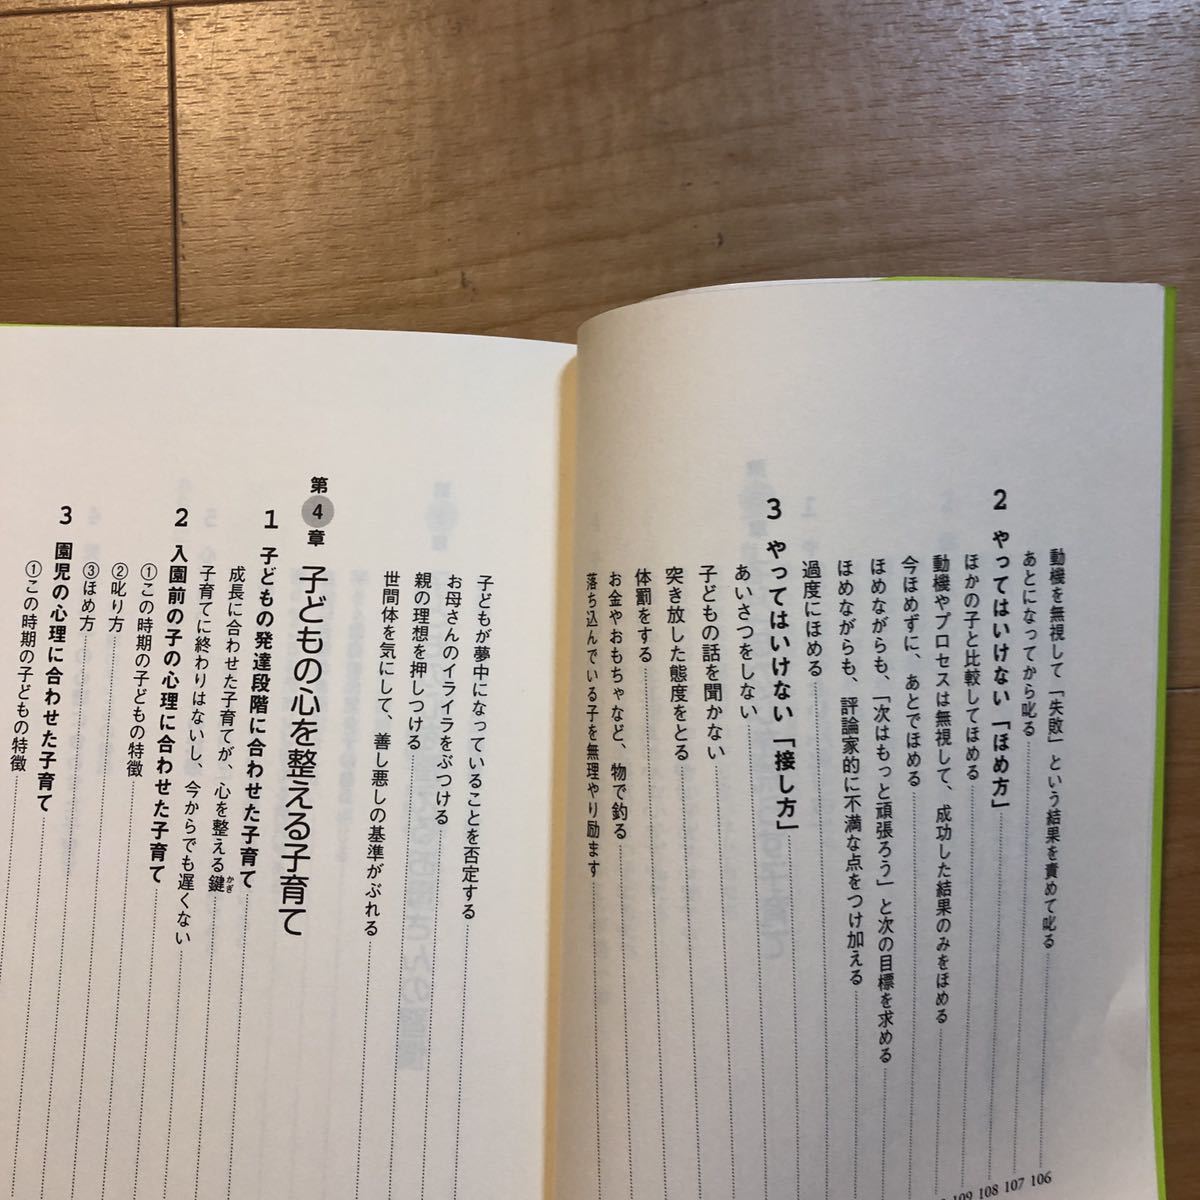 動機を無視して「失敗」という結果を責めて叱る
あとになってから叱る
2 やってはいけない「ほめ方」
ほかの子と比較してほめる
動機やプロセスは無視して、成功した結果のみをほめる
今ほめずに、あとでほめる
ほめながらも、「次はもっと頑張ろう」と次の目標を求める
ほめながらも、評論家的に不満な点をつけ加える
過度にほめる
3 やってはいけない「接し方」
あいさつをしない
子どもの話を聞かない
突き放した態度をとる
体罰をする
お金やおもちゃなど、物で釣る
落ち込んでいる子を無理やり励ます
106
107
108
109
子どもが夢中になっていることを否定する
お母さんのイライラをぶつける
親の理想を押しつける
世間体を気にして、善し悪しの基準がぶれる
第4章 子どもの心を整える子育て
1 子どもの発達段階に合わせた子育て
成長に合わせた子育てが、心を整える鍵
かぎ
子育てに終わりはないし、今からでも遅くない
2 入園前の子の心理に合わせた子育て
①この時期の子どもの特徴
②叱り方
③ほめ方
3 園児の心理に合わせた子育て
①この時期の子どもの特徴